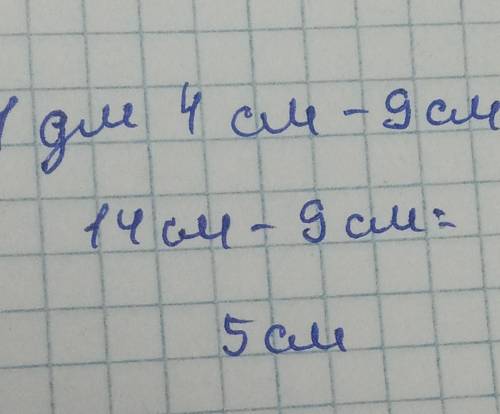 1 дм 4 см - 9 см
14 см - 9 см =
5 см